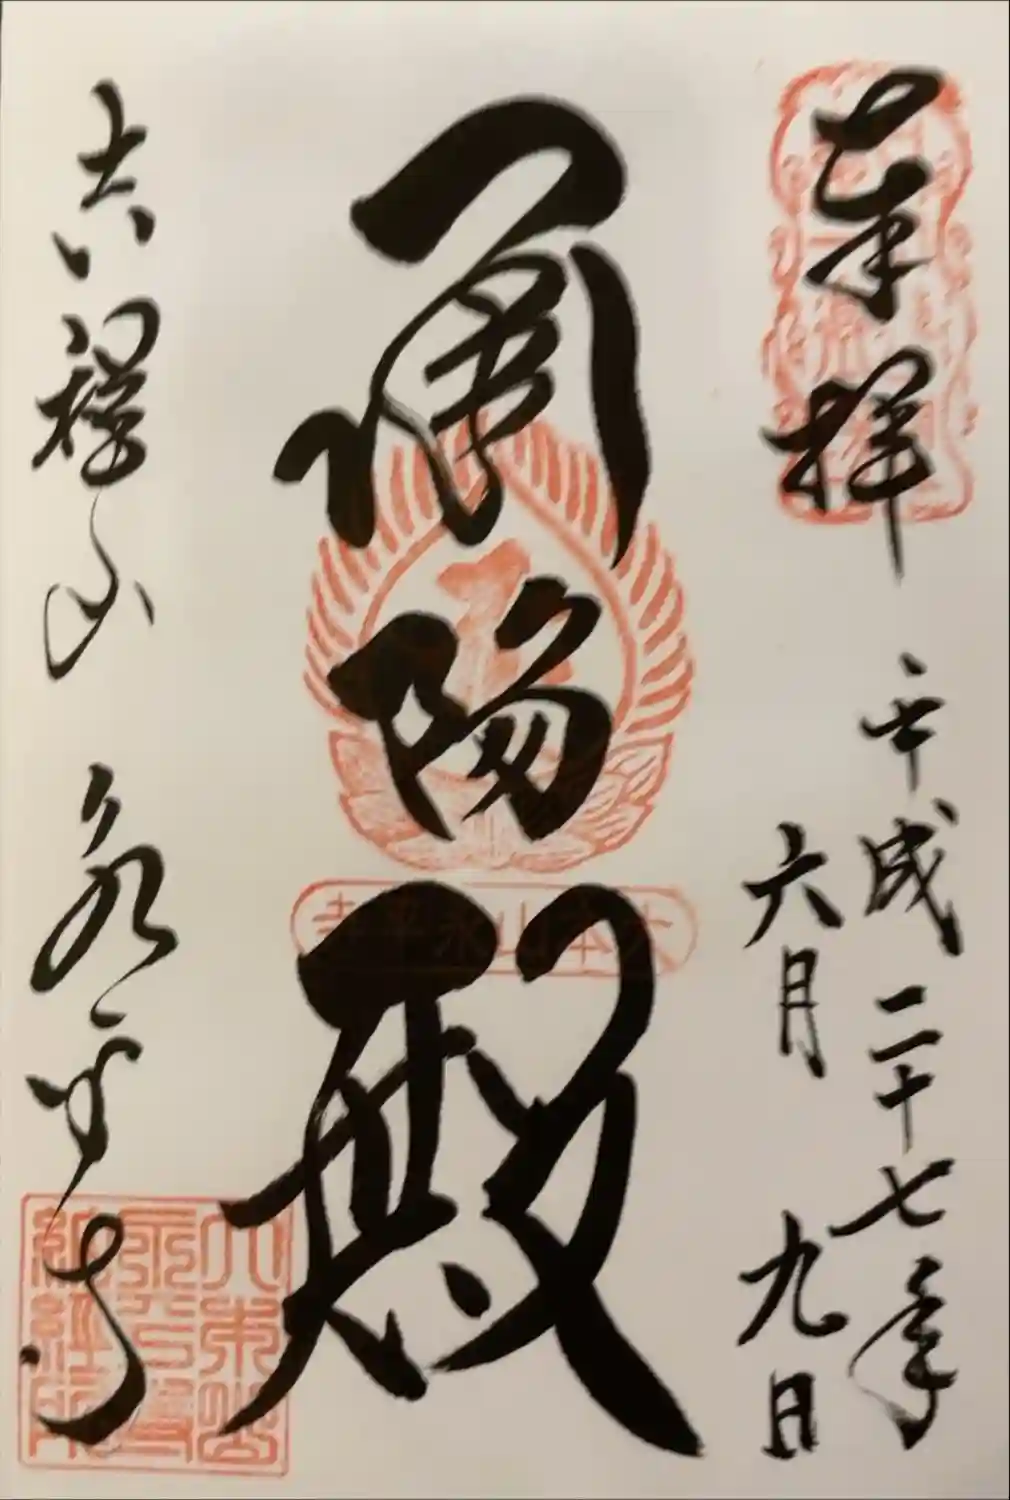 奉拝 平成二十七年
六月九日
承陽殿
大本山永平寺
吉祥山 永平寺
大本山
永平寺
納経所